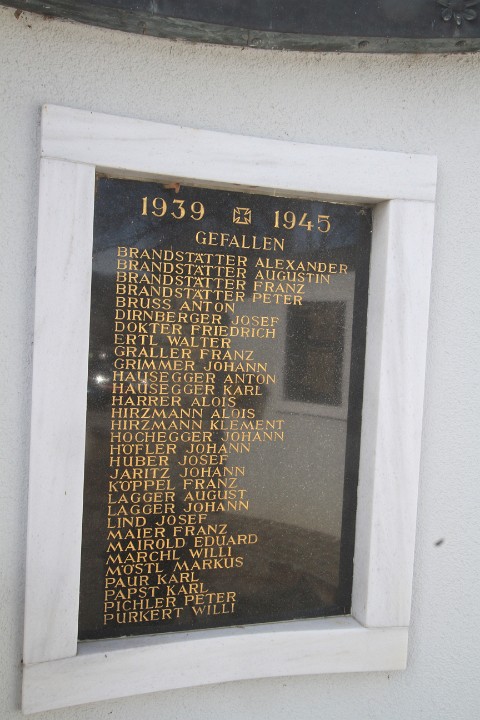 1939 1945
GEFALLEN
BRANDSTÄTTER ALEXANDER
BRANDSTÄTTER AUGUSTIN
BRANDSTÄTTER FRANZ
BRANDSTÄTTER PETER
BRUSS ANTON
DIRNBERGER JOSEF
DOKTER FRIEDRICH
ERTL WALTER
GRALLER FRANZ
GRIMMER JOHANN
HAUSEGGER ANTON
HAUSEGGER KARL
HARRER ALOIS
HIRZMANN ALOIS
HIRZMANN KLEMENT
HOCHEGGER JOHANN
HÖFLER JOHANN
HUBER JOSEF
JARITZ JOHANN
KÖPPEL FRANZ
LAGGER AUGUST
LAGGER JOHANN
LIND JOSEF
MAIER FRANZ
MAIROLD EDUARD
MARCHL WILLI
MÖSTL MARKUS
PAUR KARL
PAPST KARL
PICHLER PETER
PURKERT WILLI